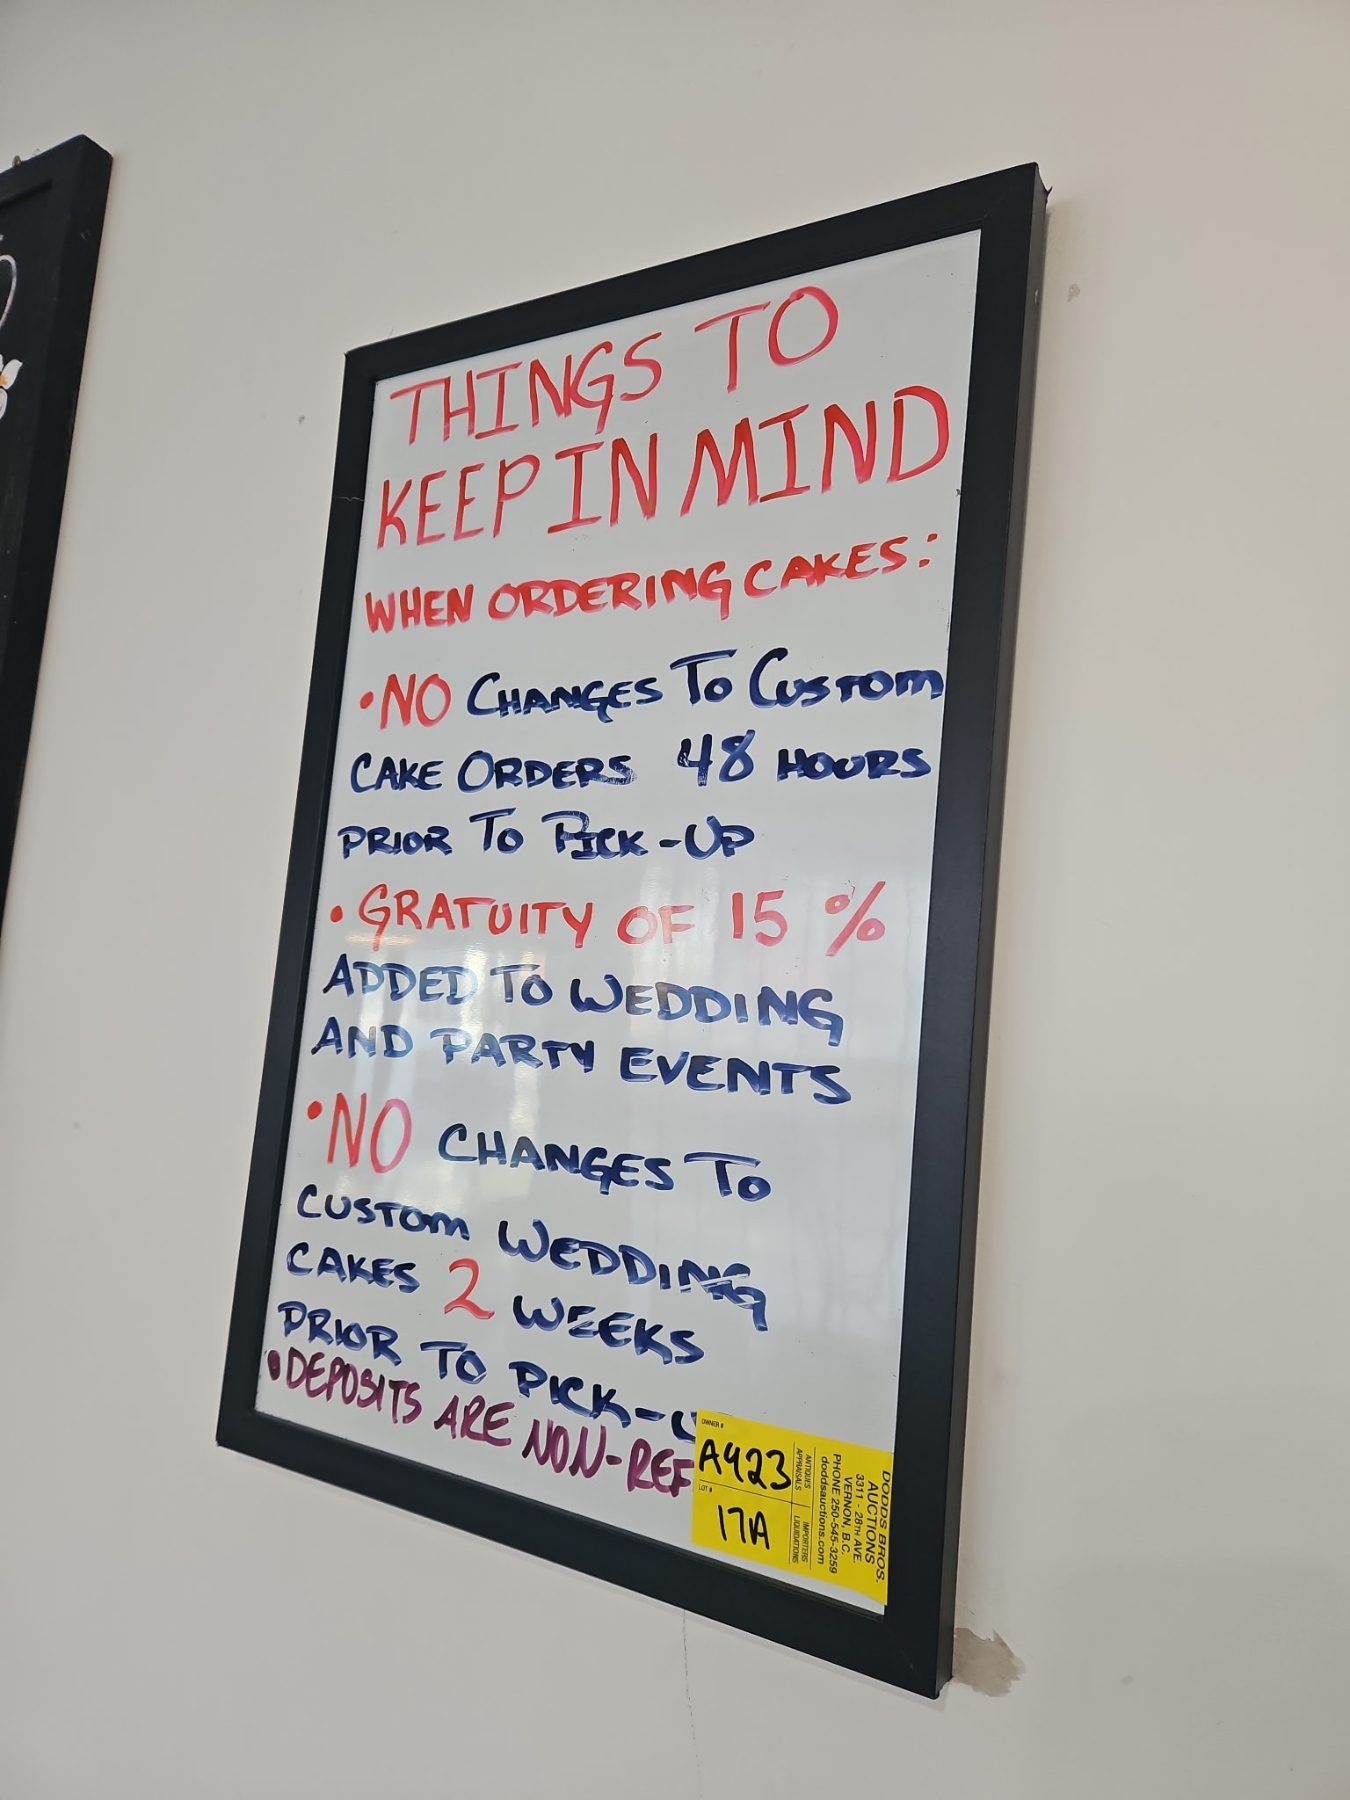 THINGS TO
KEEP IN MIND
WHEN ORDERING CAKES:
• NO CHANGES TO CUSTOM
CAKE ORDERS 48 HOURS
PRIOR TO PICK-UP
• GRATUITY OF 15 %
ADDED TO WEDDING
AND PARTY EVENTS
• NO CHANGES TO
CUSTOM WEDDING
CAKES 2 WEEKS
PRIOR TO PICK-U
• DEPOSITS ARE NON-REF
OWNER #
A423
LOT #
17A
ANTIQUES
APPRAISALS
IMPORTERS
LIQUIDATIONS
DODDS BROS.
AUCTIONS
3311 - 28TH AVE.
VERNON, B.C.
PHONE 250-545-3259
doddsauctions.com